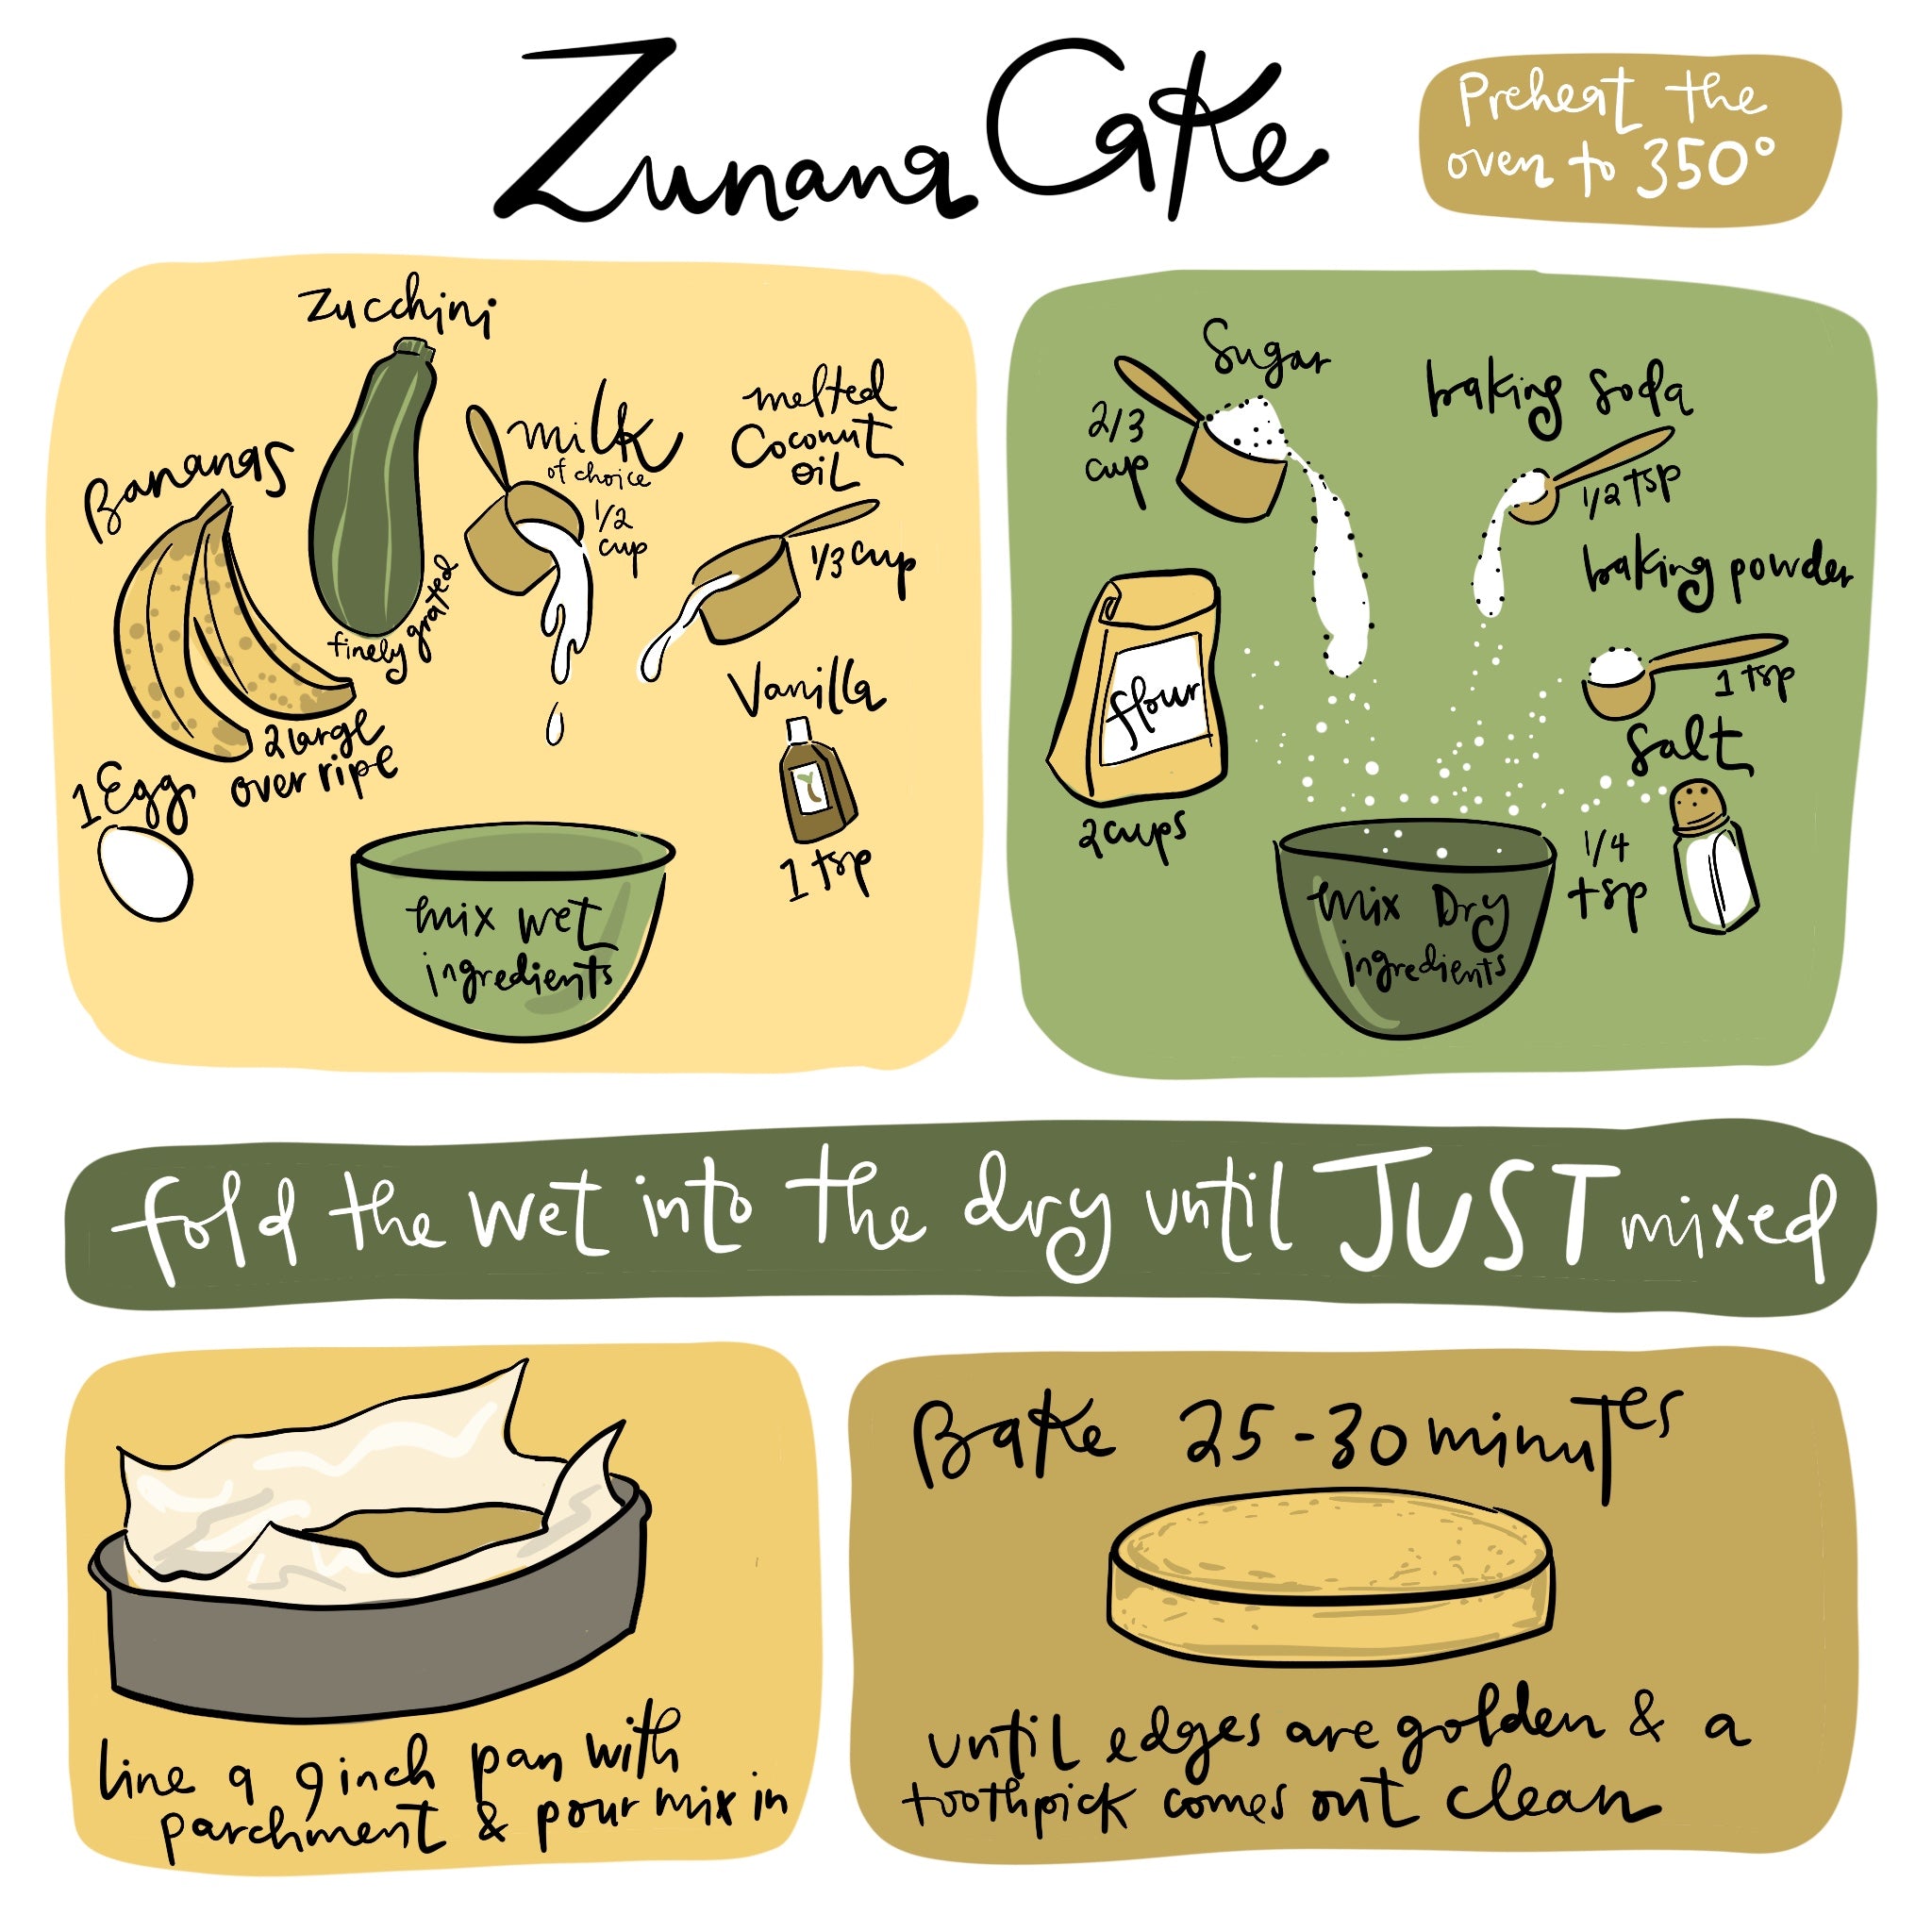 Zunana Cake
Preheat the
oven to 350°
Zucchini
finely grated
Bananas
2 large
over ripe
1 Egg
milk
of choice
1/2
cup
melted
Coconut
oil
1/3 cup
Vanilla
1 tsp
mix wet
ingredients
Sugar
2/3
cup
baking soda
1/2 tsp
baking powder
1 tsp
flour
2 cups
Salt
1/4
tsp
mix Dry
ingredients
fold the wet into the dry until JUST mixed
line a 9 inch pan with
parchment & pour mix in
Bake 25-30 minutes
until edges are golden & a
toothpick comes out clean